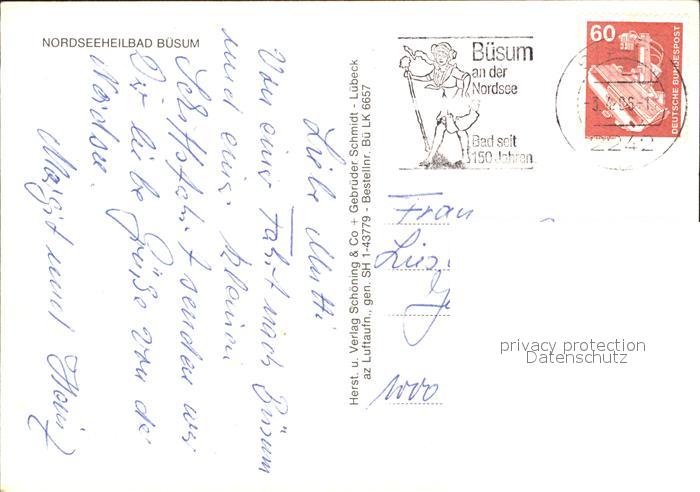 NORDSEEHEILBAD BÜSUM
Liebe Mutti
Von einer Fahrt nach Büsum
und einer kleinen
Schiffsfahrt senden wir
Dir liebe Grüße von der
Nordsee.
Margit und Heinz
Herst. u. Verlag Schöning & Co + Gebrüder Schmidt - Lübeck
az Luftaufn., gen. SH 1-43779 - Bestellnr. Bü LK 6657
Büsum
an der
Nordsee
Bad seit
150 Jahren
60
DEUTSCHE BUNDESPOST
2242
Frau
1000
privacy protection
Datenschutz